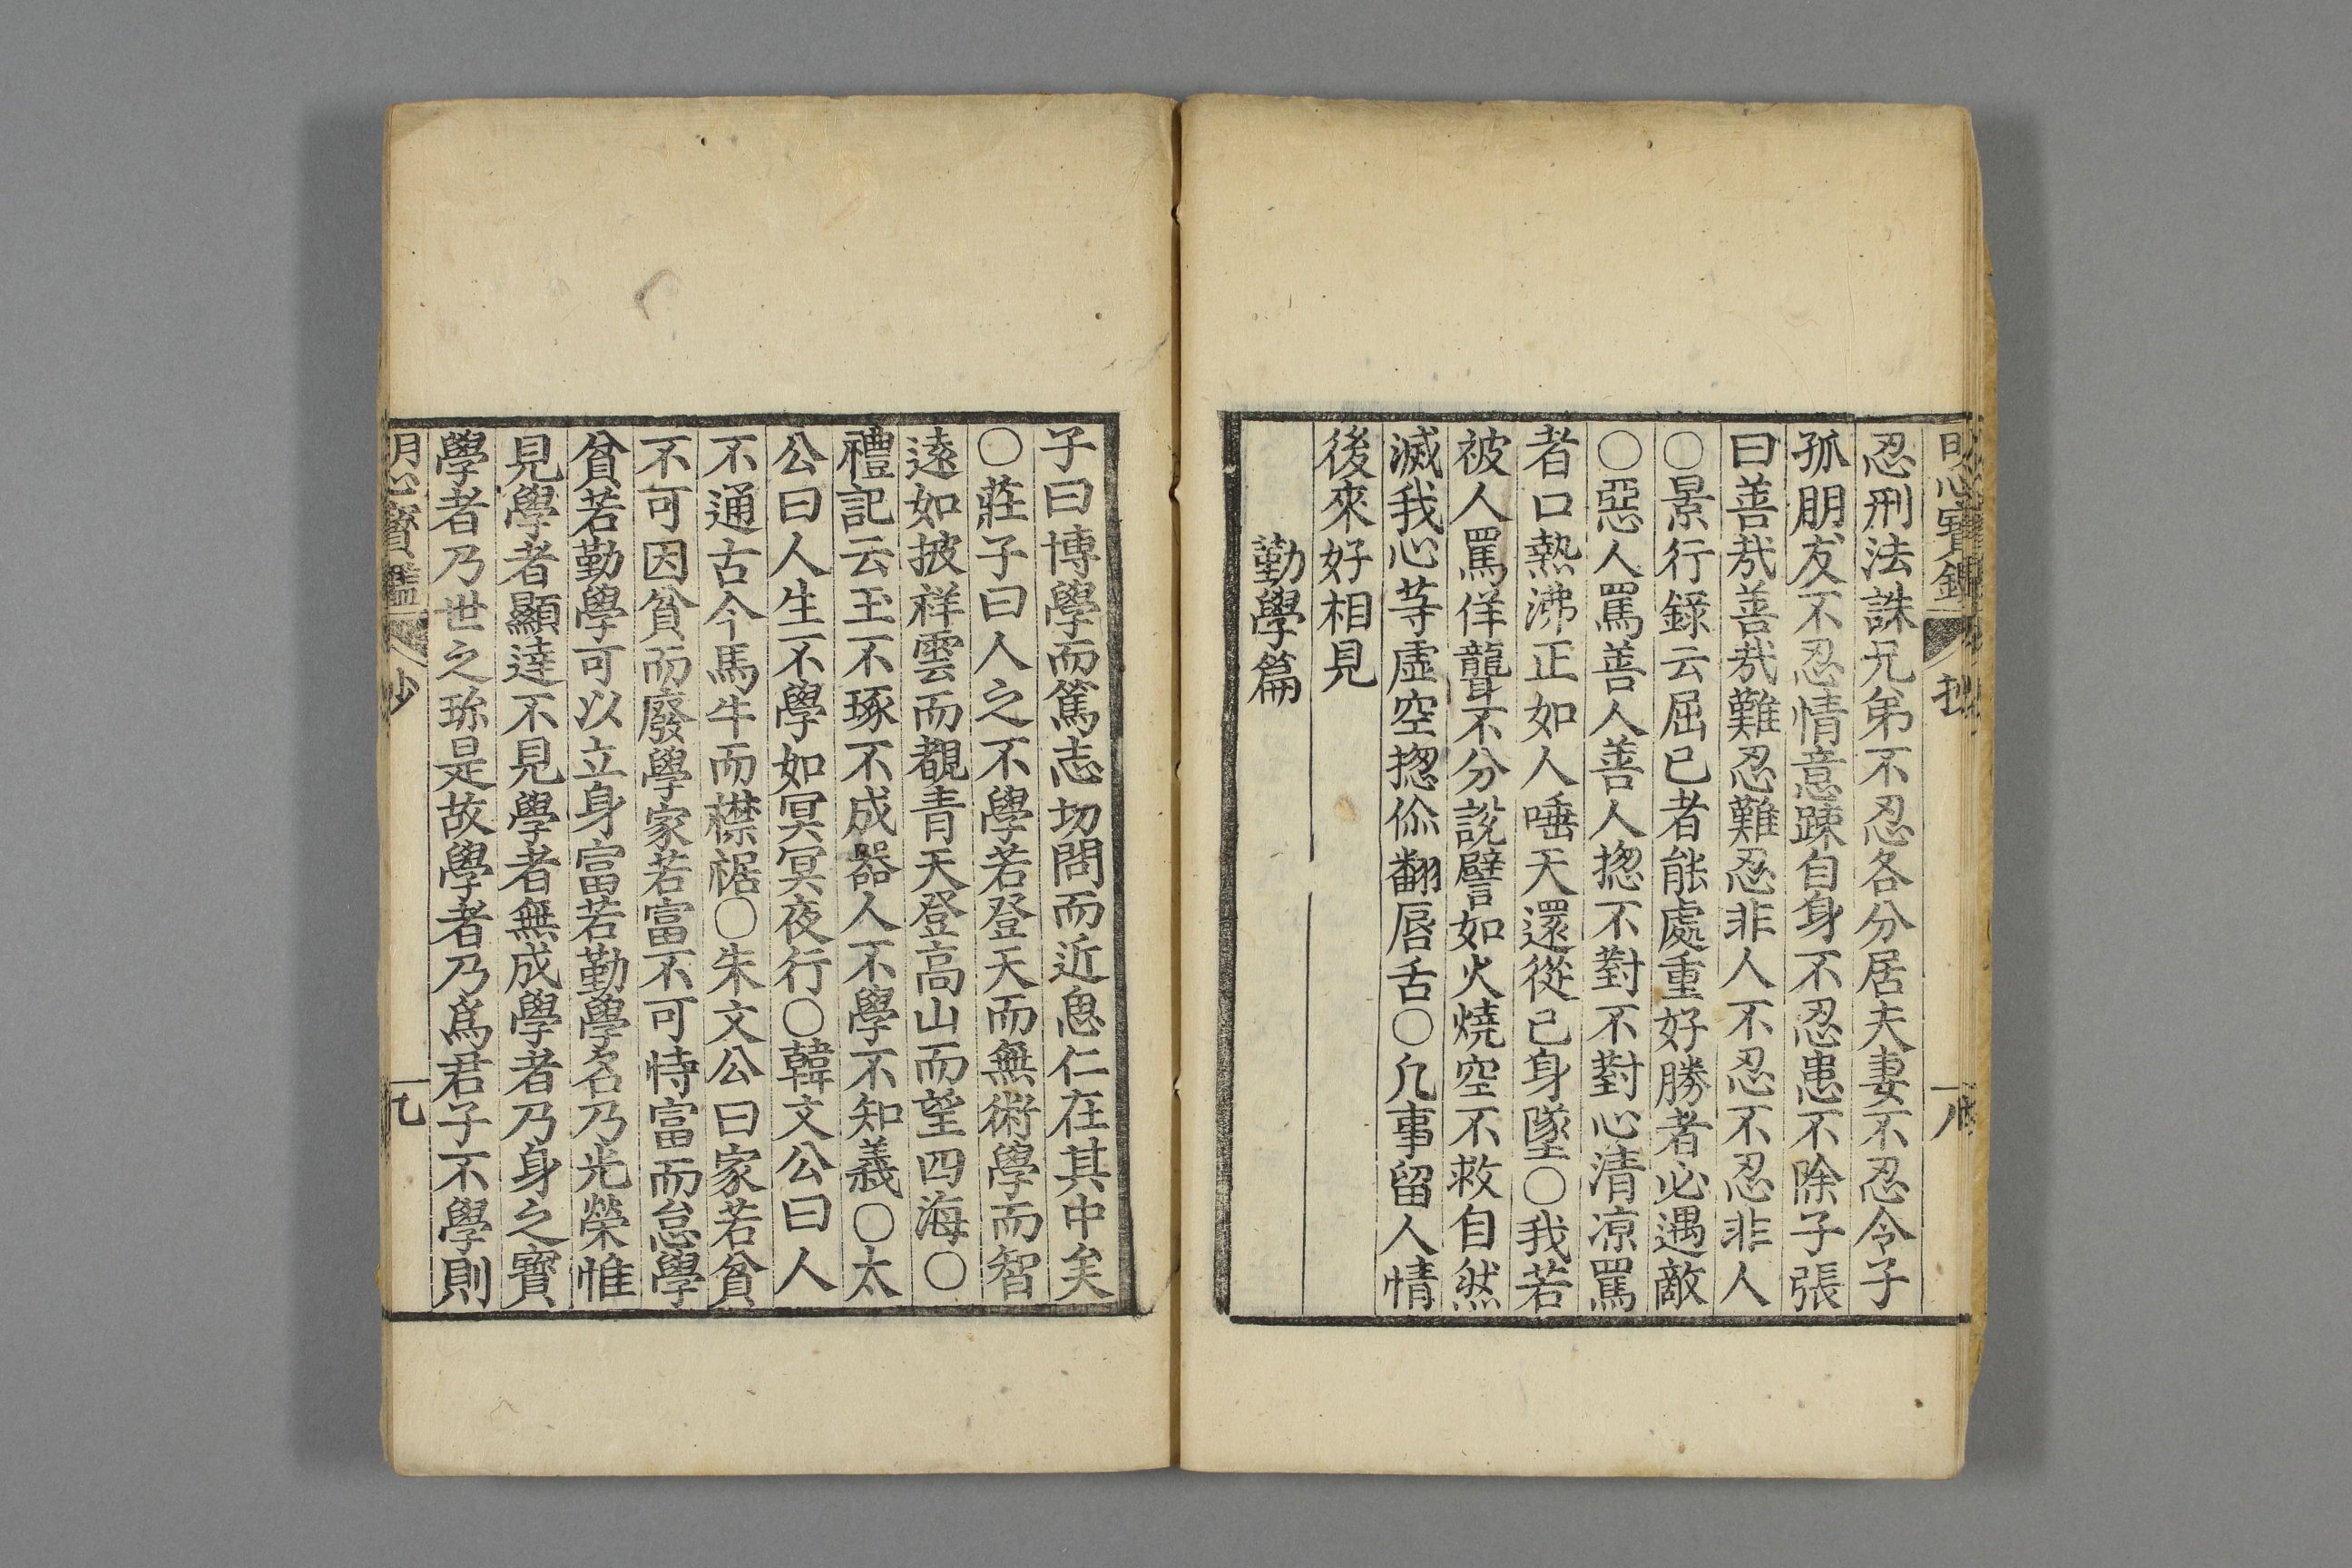 忍刑法誅兄弟不忍各分居夫妻不忍令子
孤朋友不忍情意踈自身不忍患不除子張
曰善㢤善㢤難忍難忍非人不忍不忍非人
○景行錄云屈已者能處重好勝者必遇敵
○惡人罵善人善人揔不對不對心清凉罵
者口熱沸正如人唾天還從已身墜○我若
被人罵佯聾不分說譬如火燒空不救自然
滅我心䓁虛空揔伱翻唇舌○凢事留人情
後來好相見
勤學篇
子曰博學而篤志切問而近思仁在其中矣
○莊子曰人之不學若登天而無術學而智
遠如披祥雲而覩青天登高山而望四海○
禮記云玉不琢不成器人不學不知義○太
公曰人生不學如冥冥夜行○韓文公曰人
不通古今馬牛而襟裾○朱文公曰家若貧
不可因貧而廢學家若富不可恃富而怠學
貧若勤學可以立身富若勤學名乃光榮惟
見學者顯達不見學者無成學者乃身之寳
學者乃世之珎是故學者乃爲君子不學則
明心寳鑑 抄 九